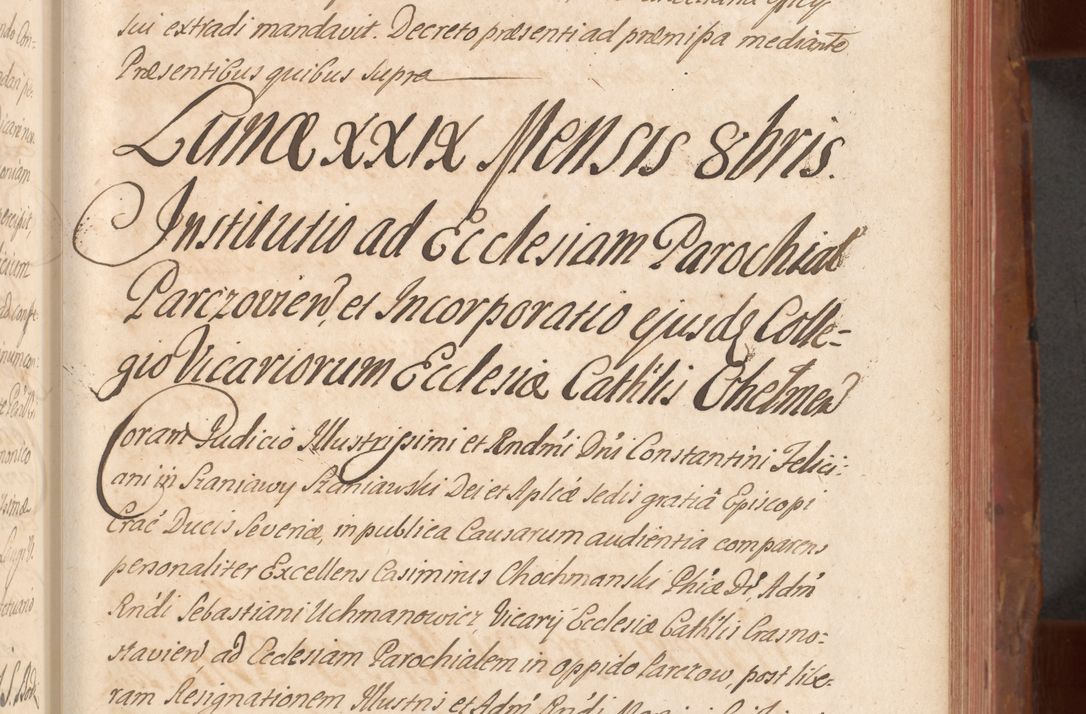 sui extradi mandavit. Decreto præsenti ad præmissa mediante
Præsentibus quibus supra
Lunæ XXIX Mensis 8bris.
Institutio ad Ecclesiam Parochial
Parczovien, et Incorporatio ejusdq Colle-
gio Vicariorum Ecclesiæ Cathlis Chelmen
Coram Judicio Illustrissimi et Rndmi Dni Constantini Felici-
ani in Szaniawy Szaniawski Dei et Aplicæ Sedis gratiâ Episcopi
Crac Ducis Severiæ, in publica Causarum audientia comparens
personaliter Excellens Casimirus Chochmanski Phiæ Dr Admˈ
Rndi Sebastiani Uchmanowicz Vicarij Ecclesiæ Cathlis Crasno-
stavien ad Ecclesiam Parochialem in oppido Parczow, post libe-
ram Resignationem Illustris et Adm Rndi
ndo Con-